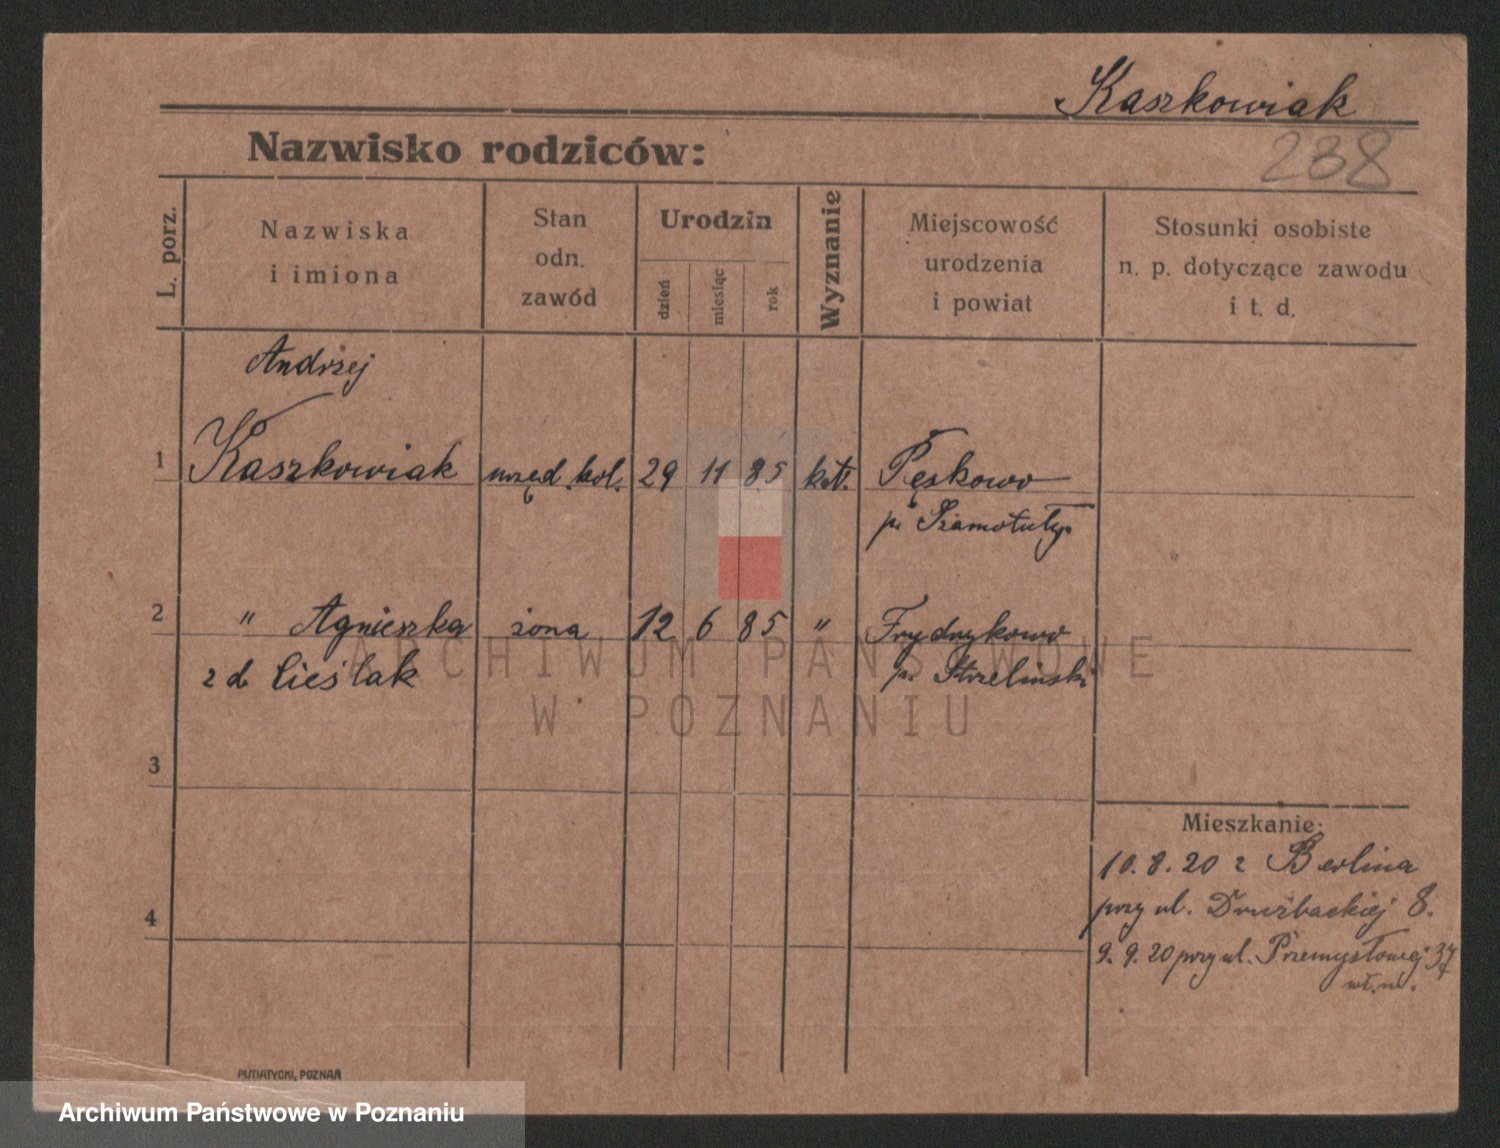 Kaszkowiak
Nazwisko rodziców:
238
L. porz.
Nazwiska
i imiona
Stan
odn.
zawód
Urodzin
dzień
miesiąc
rok
Wyznanie
Miejscowość
urodzenia
i powiat
Stosunki osobiste
n. p. dotyczące zawodu
i t. d.
Andrzej
1 Kaszkowiak urzęd. kol. 29 11 85 kat. Pęskowo
p. Szamotuły
2 " Agnieszka żona 12 6 85 " Frydrykowo
z d. Cieślak p. Strzeliński
ARCHIWUM PAŃSTWOWE
W POZNANIU
3
Mieszkanie:
10. 8. 20 z Berlina
4 przy ul. Drużbackiej 8.
9. 9. 20 przy ul. Przemysłowej 37
PUTIATYCKI, POZNAŃ
Archiwum Państwowe w Poznaniu